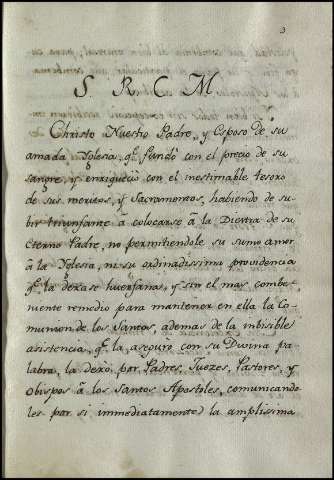 3
S. R. C. M.
Christo Nuestro Padre, y Esposo de su
amada Yglesia, qͤ. fundó con el precio de su
sangre, y enriqueció con el inestimable tesoro
de sus meritos, y Sacramentos, habiendo de su-
bir triunfante à colocarse à la Diestra de su
Eterno Padre, no permitiendole su sumo amor
à la Yglesia, ni su ordinadissima providencia
qͤ. la dexase huerfana, y sin el mas combe-
niente remedio para mantener en ella la Co-
munion de los Santos, ademas de la inbisible
asistencia, qͤ. la aseguró con su Divina pa-
labra, la dexó por Padres, Juezes, Pastores, y
Obispos à los Santos Apostoles, comunicando
les por si immediatamente la amplissima